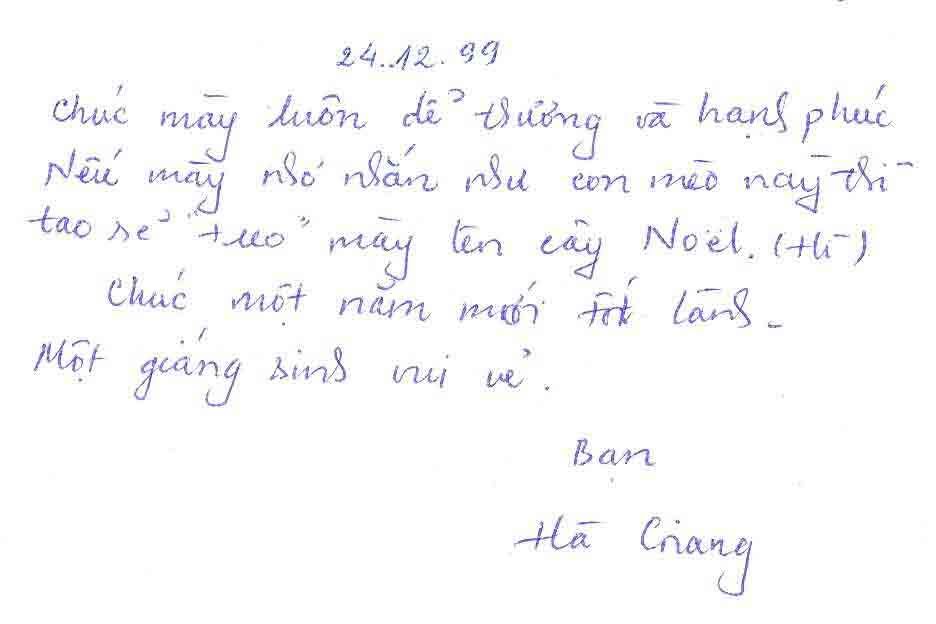 24.12.99
Chúc mày luôn dể thương và hạnh phúc
Nếu mày nhỏ nhắn như con mèo này thì
tao sẻ "treo" mày lên cây Noel. (Hi)
Chúc một năm mới tốt lành -
Một giáng sinh vui vẻ.
Bạn
Hà Giang